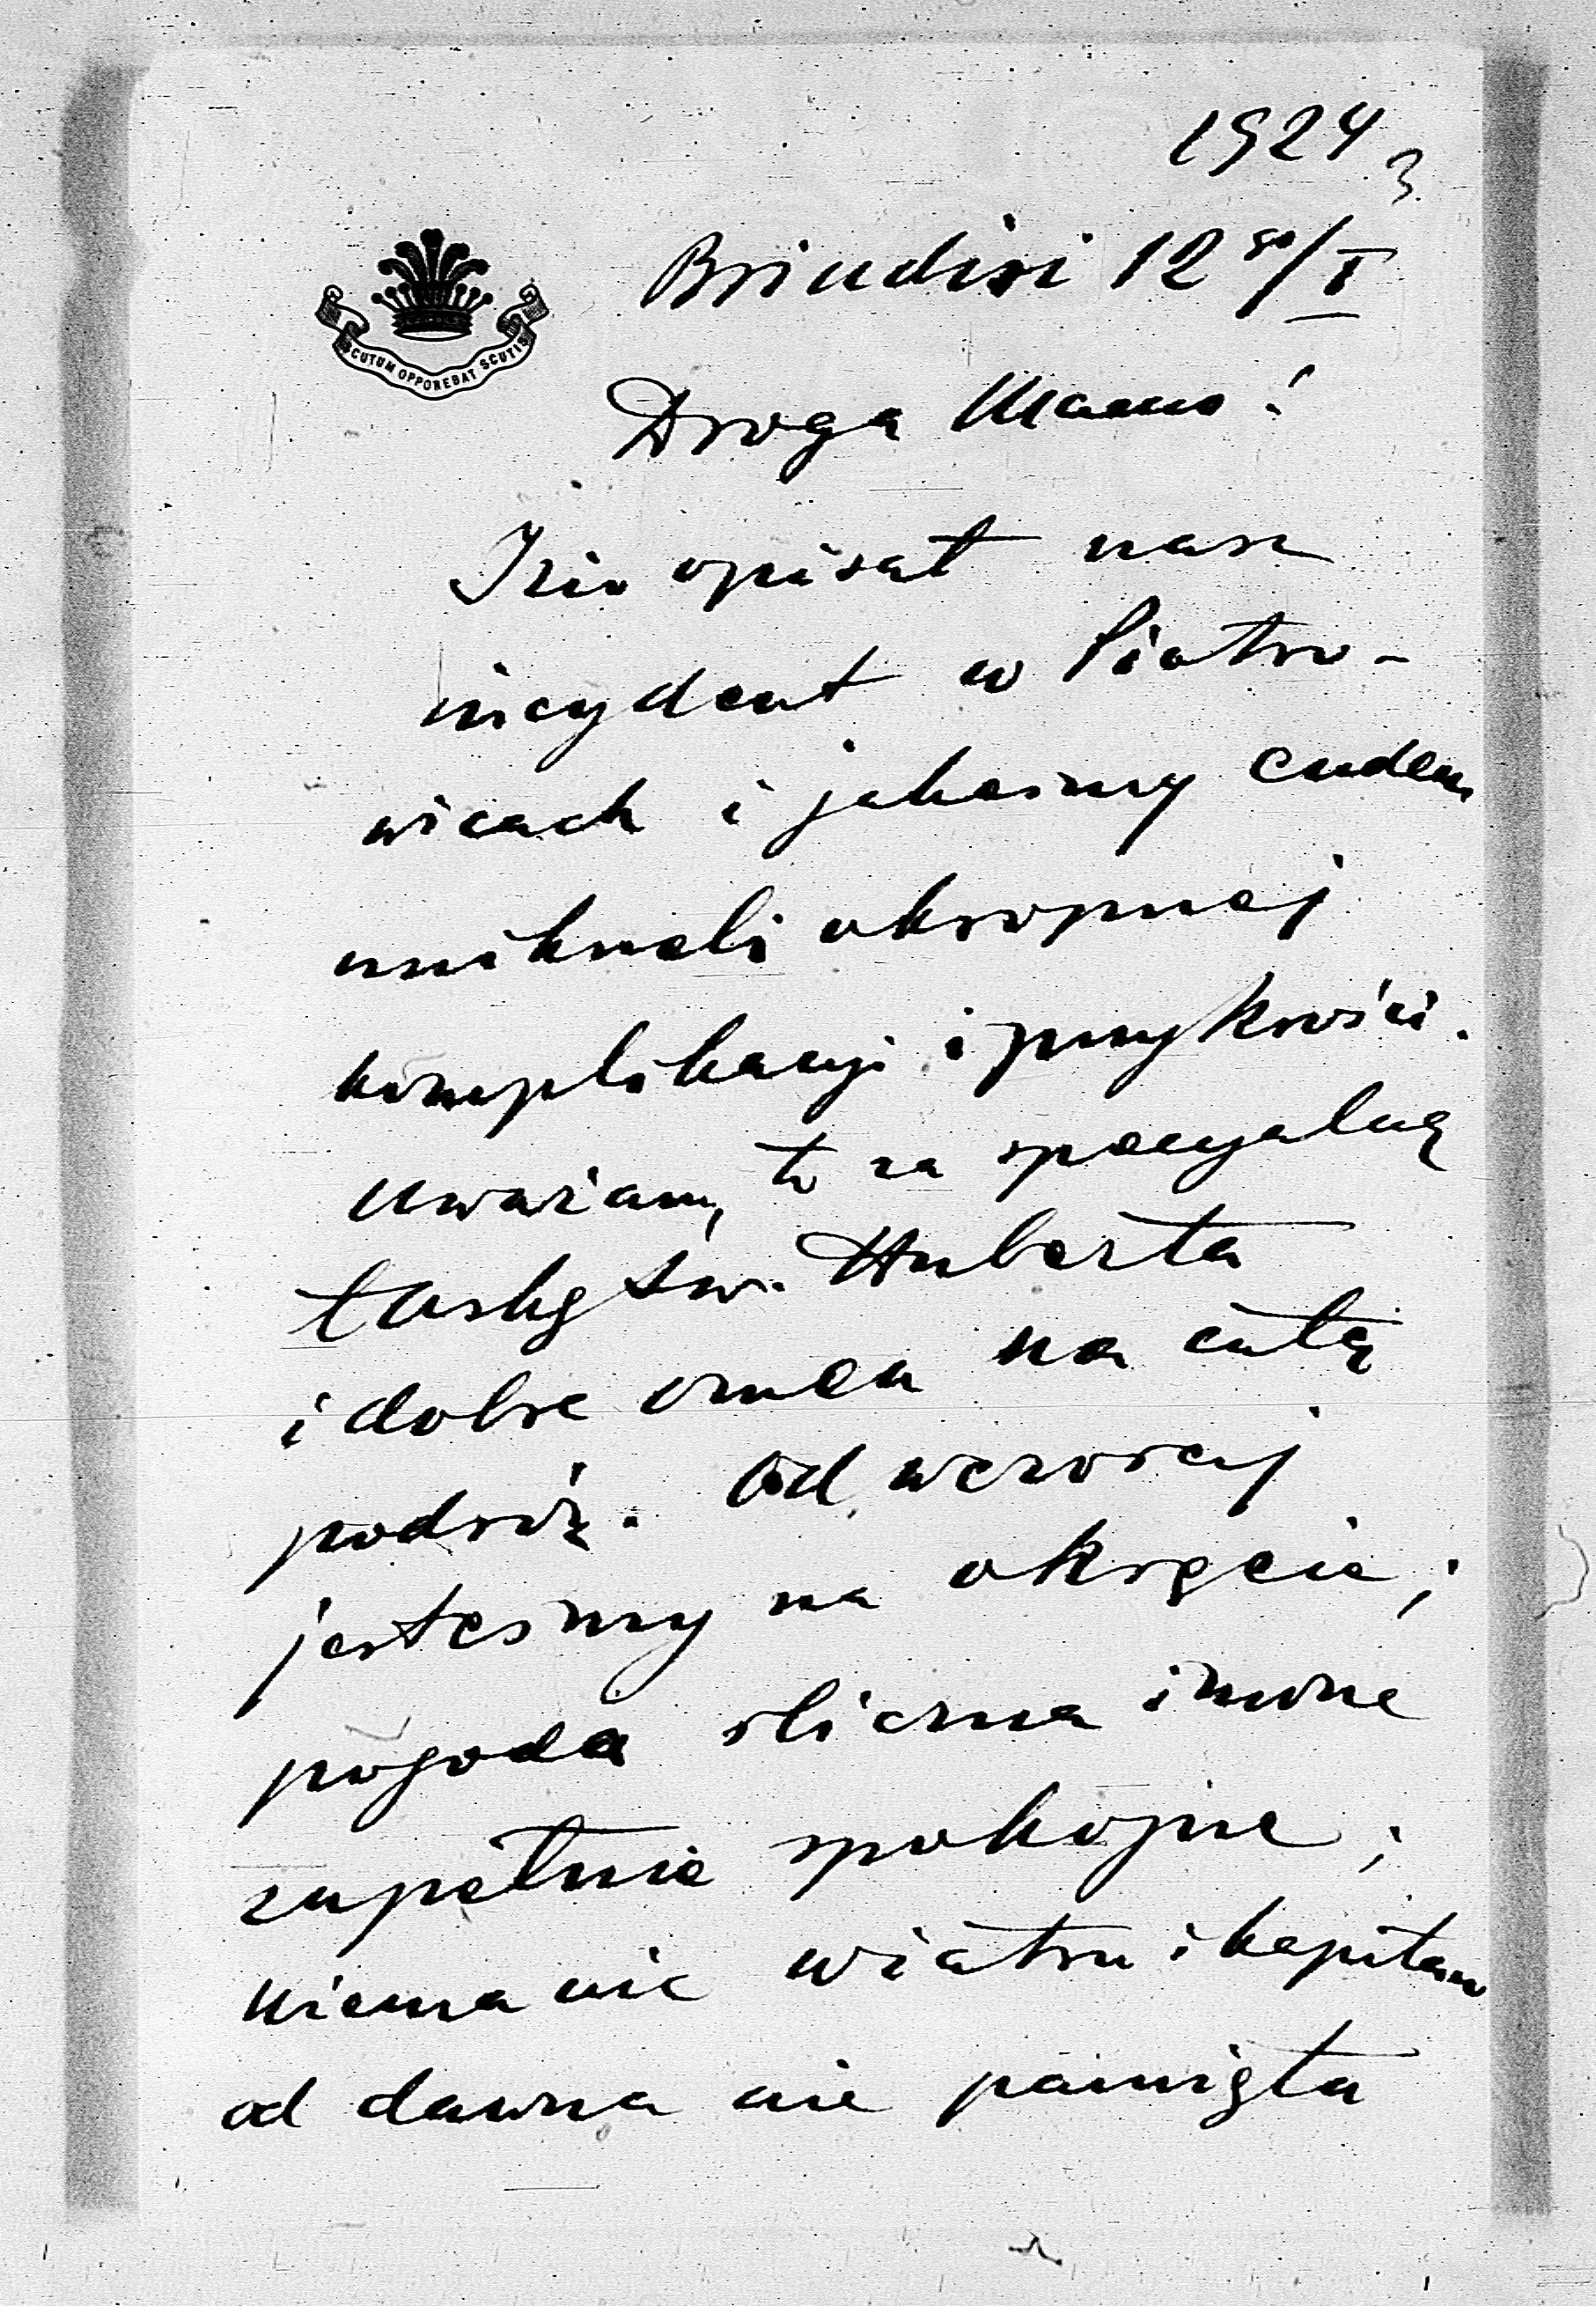 1924
3
Brindisi 12go/I
SCUTUM OPPONEBAT SCUTIS
Droga Mamo!
Izio opisał nasz
incydent w Piotro-
wicach i jakeśmy cudem
uniknęli okropnej
komplikacyi i przykrości.
Uważam, to za specyalną
łaskę św. Huberta
i dobre omen na całą
podróż. Od wczoraj
jesteśmy na okręcie;
pogoda śliczna i morze
zupełnie spokojne;
niema nic wiatru i kapitan
od dawna nie pamięta